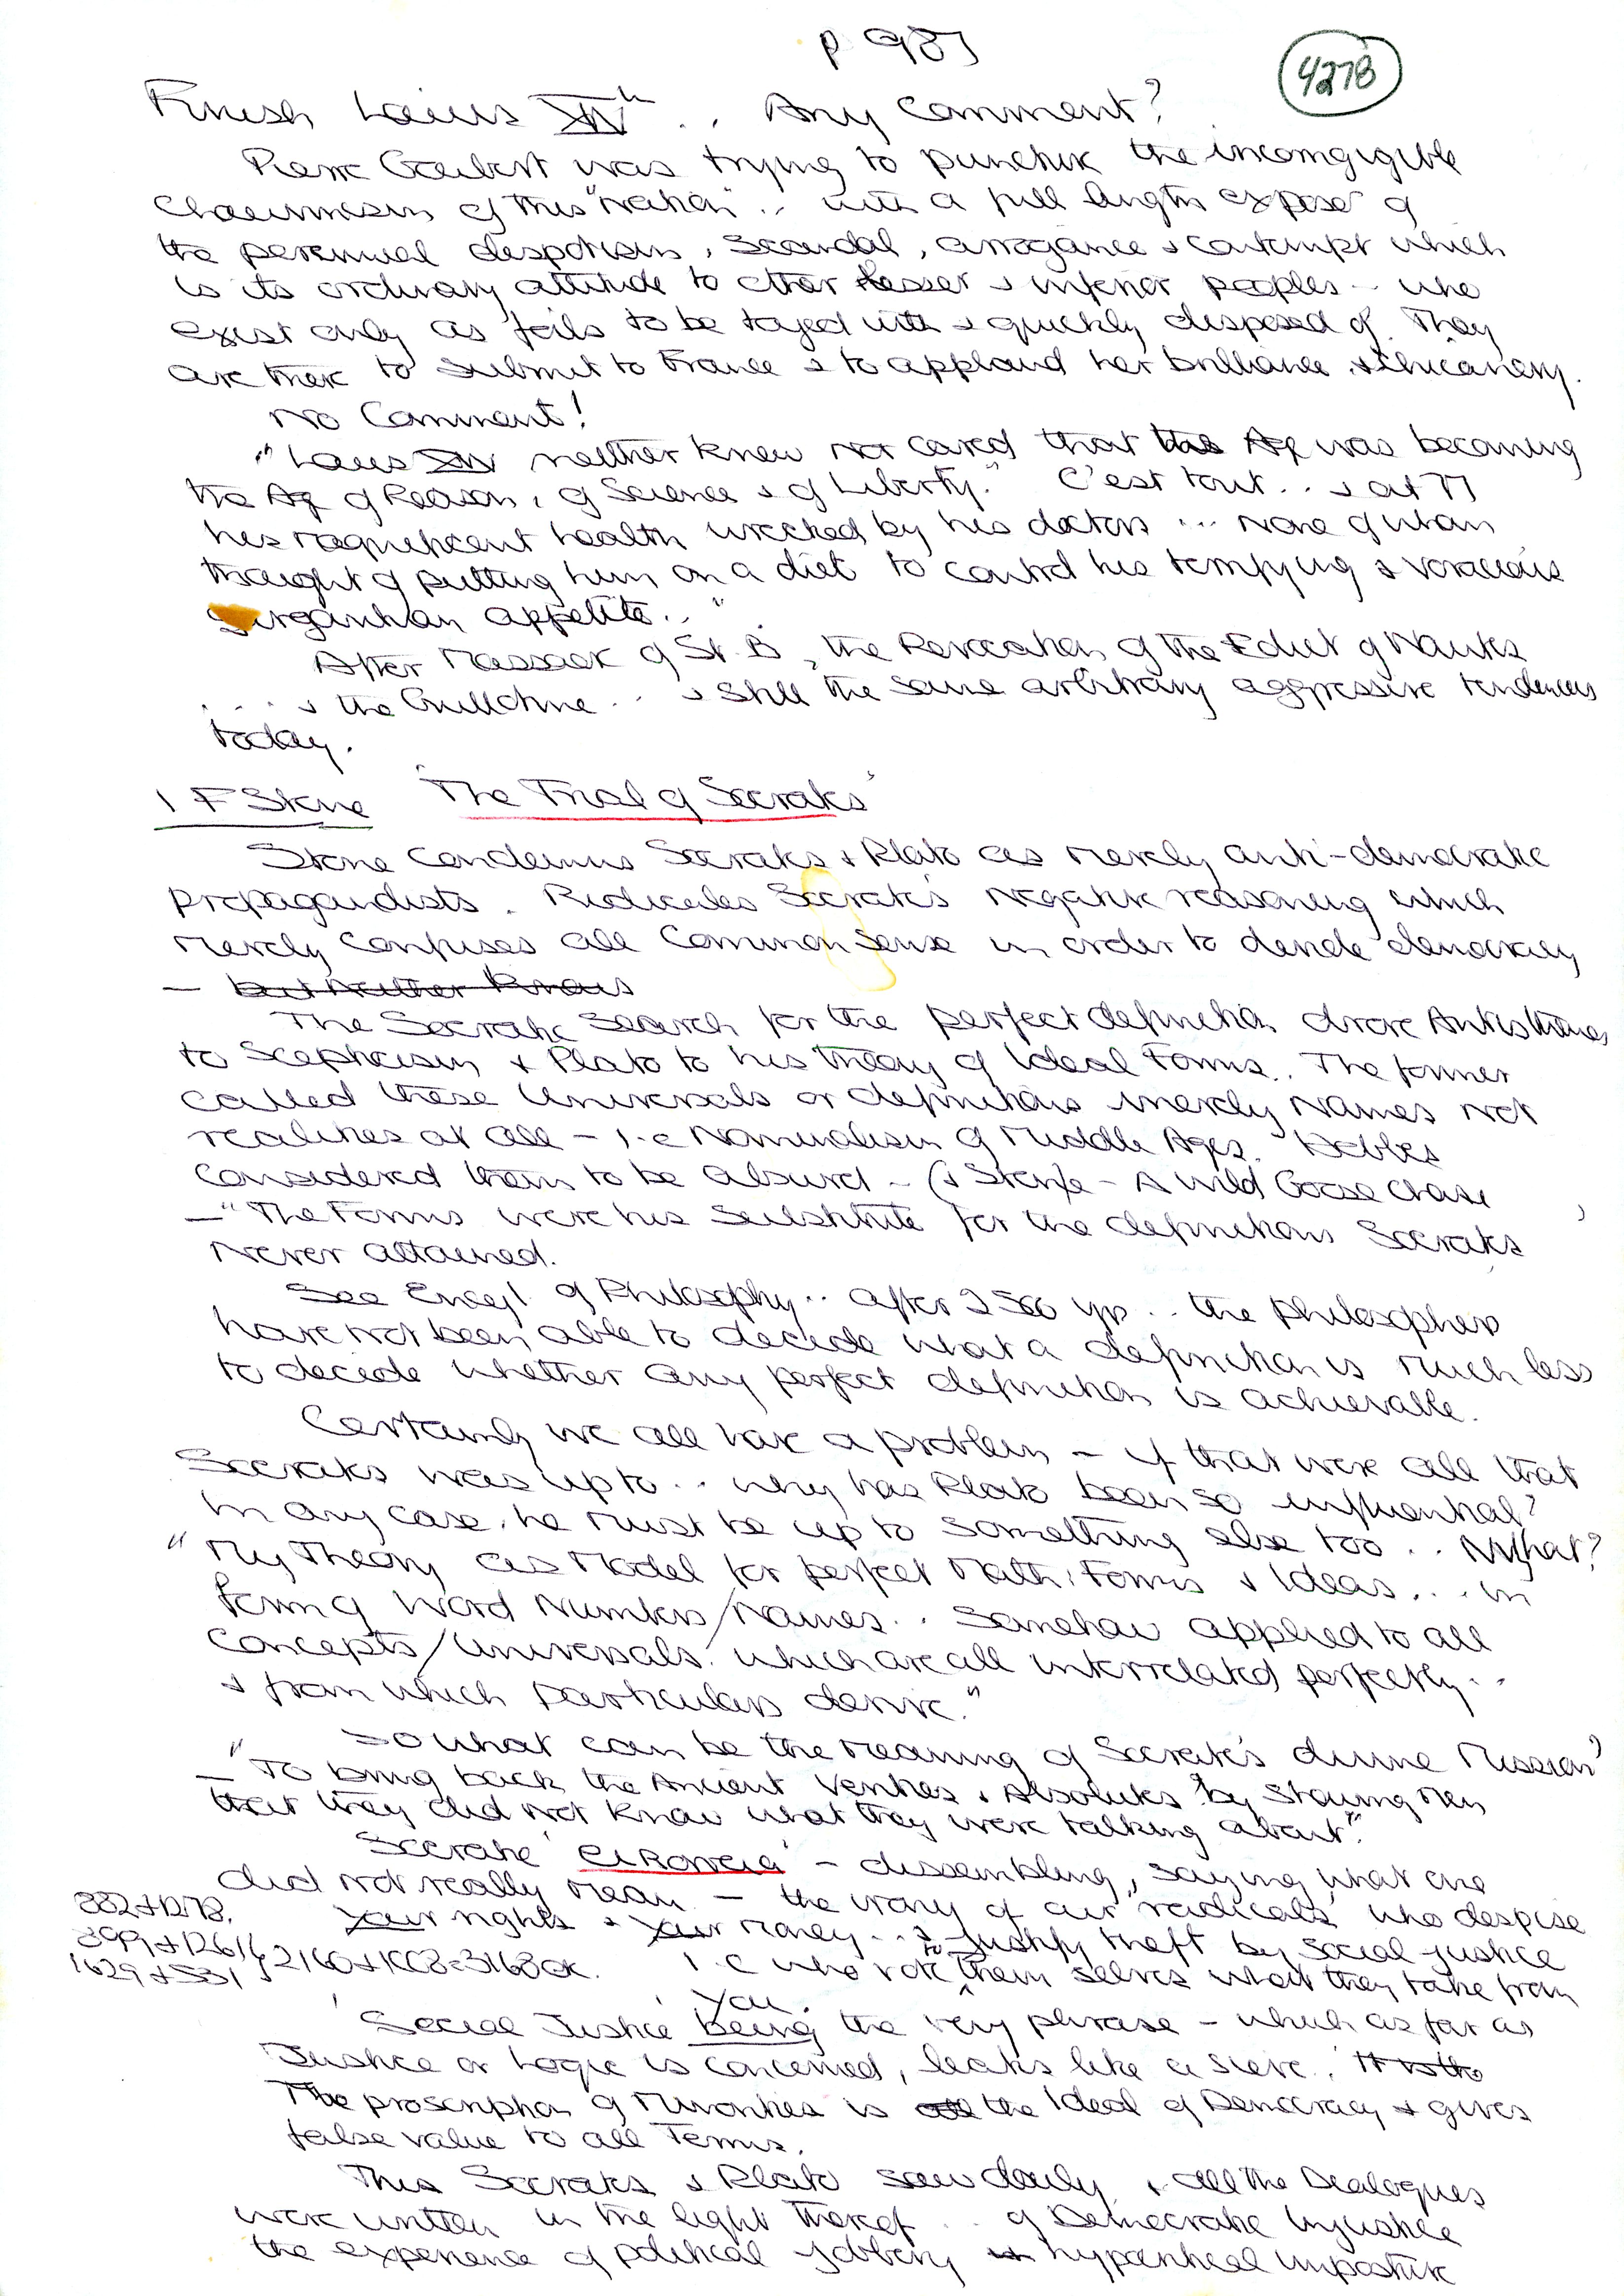 p 987
4278
Finish Louis XIVth .. Any Comment?
Pierre Goubert was trying to puncture the incorrigible
Chauvinism of this "nation" .. with a full length exposé of
the perennial despotism, Scandal, arrogance & contempt which
is its ordinary attitude to other lesser & inferior peoples .. who
exist only as foils to be toyed with & quickly disposed of. They
are there to submit to France & to applaud her brilliance & chicanery.
No Comment!
"Louis XIV neither knew nor cared that his Age was becoming
the Age of Reason, of Science & of Liberty." C'est tout .. & at 77
his magnificent health wrecked by his doctors ... None of whom
thought of putting him on a diet to control his terrifying & voracious
gargantuan appetite.."
After Massacre of St B, the Revocation of the Edict of Nantes
.... & the Guillotine .. & still the same arbitrary aggressive tendencies
today.
I F Stone 'The Trial of Socrates'
Stone condemns Socrates & Plato as merely anti-democratic
propagandists. Ridicules Socrates negative reasoning which
merely confuses all common sense in order to deride democracy
— but neither knows
The Socratic search for the perfect definition drove Antisthenes
to Scepticism & Plato to his theory of Ideal Forms.. The former
called these Universals or definitions merely Names not
realities at all – i.e Nominalism of Middle Ages. Hobbes
considered them to be absurd – (& Stone – A Wild Goose chase
— "The Forms were his substitute for the definitions Socrates
never attained.
See Encyl of Philosophy .. after 2500 yrs .. the philosophers
have not been able to decide what a definition is much less
to decide whether any perfect definition is achievable.
Certainly we all have a problem – if that were all that
Socrates was up to .. why has Plato been so influential?
In any case, he must be up to something else too .. What?
"My Theory as Model for perfect Math: Forms & Ideas ... in
form of Word Numbers/Names .. Somehow applied to all
Concepts/Universals. which are all interrelated perfectly ..
& from which particulars derive."
So what can be the meaning of Socrates divine Mission?
— "To bring back the Ancient Verities & Absolutes by showing Men
that they did not know what they were talking about".
Socratic 'eironeia' – dissembling, saying what one
did not really mean – the irony of our 'radicals' who despise
your rights & your money .. & to justify theft by social justice
i.e who vote them selves what they take from
you.
882+1278.
1629+531 } 2160+1008=3168 ok.
'Social Justice' being the very phrase – which as far as
Justice or Logic is concerned, leaks like a sieve. It is the
The proscription of Minorities is the Ideal of Democracy & gives
false value to all Terms.
This Socrates & Plato saw daily, & all the Dialogues
were written in the light thereof .. of Democratic injustice
the experience of political jobbery hypocritical imposture